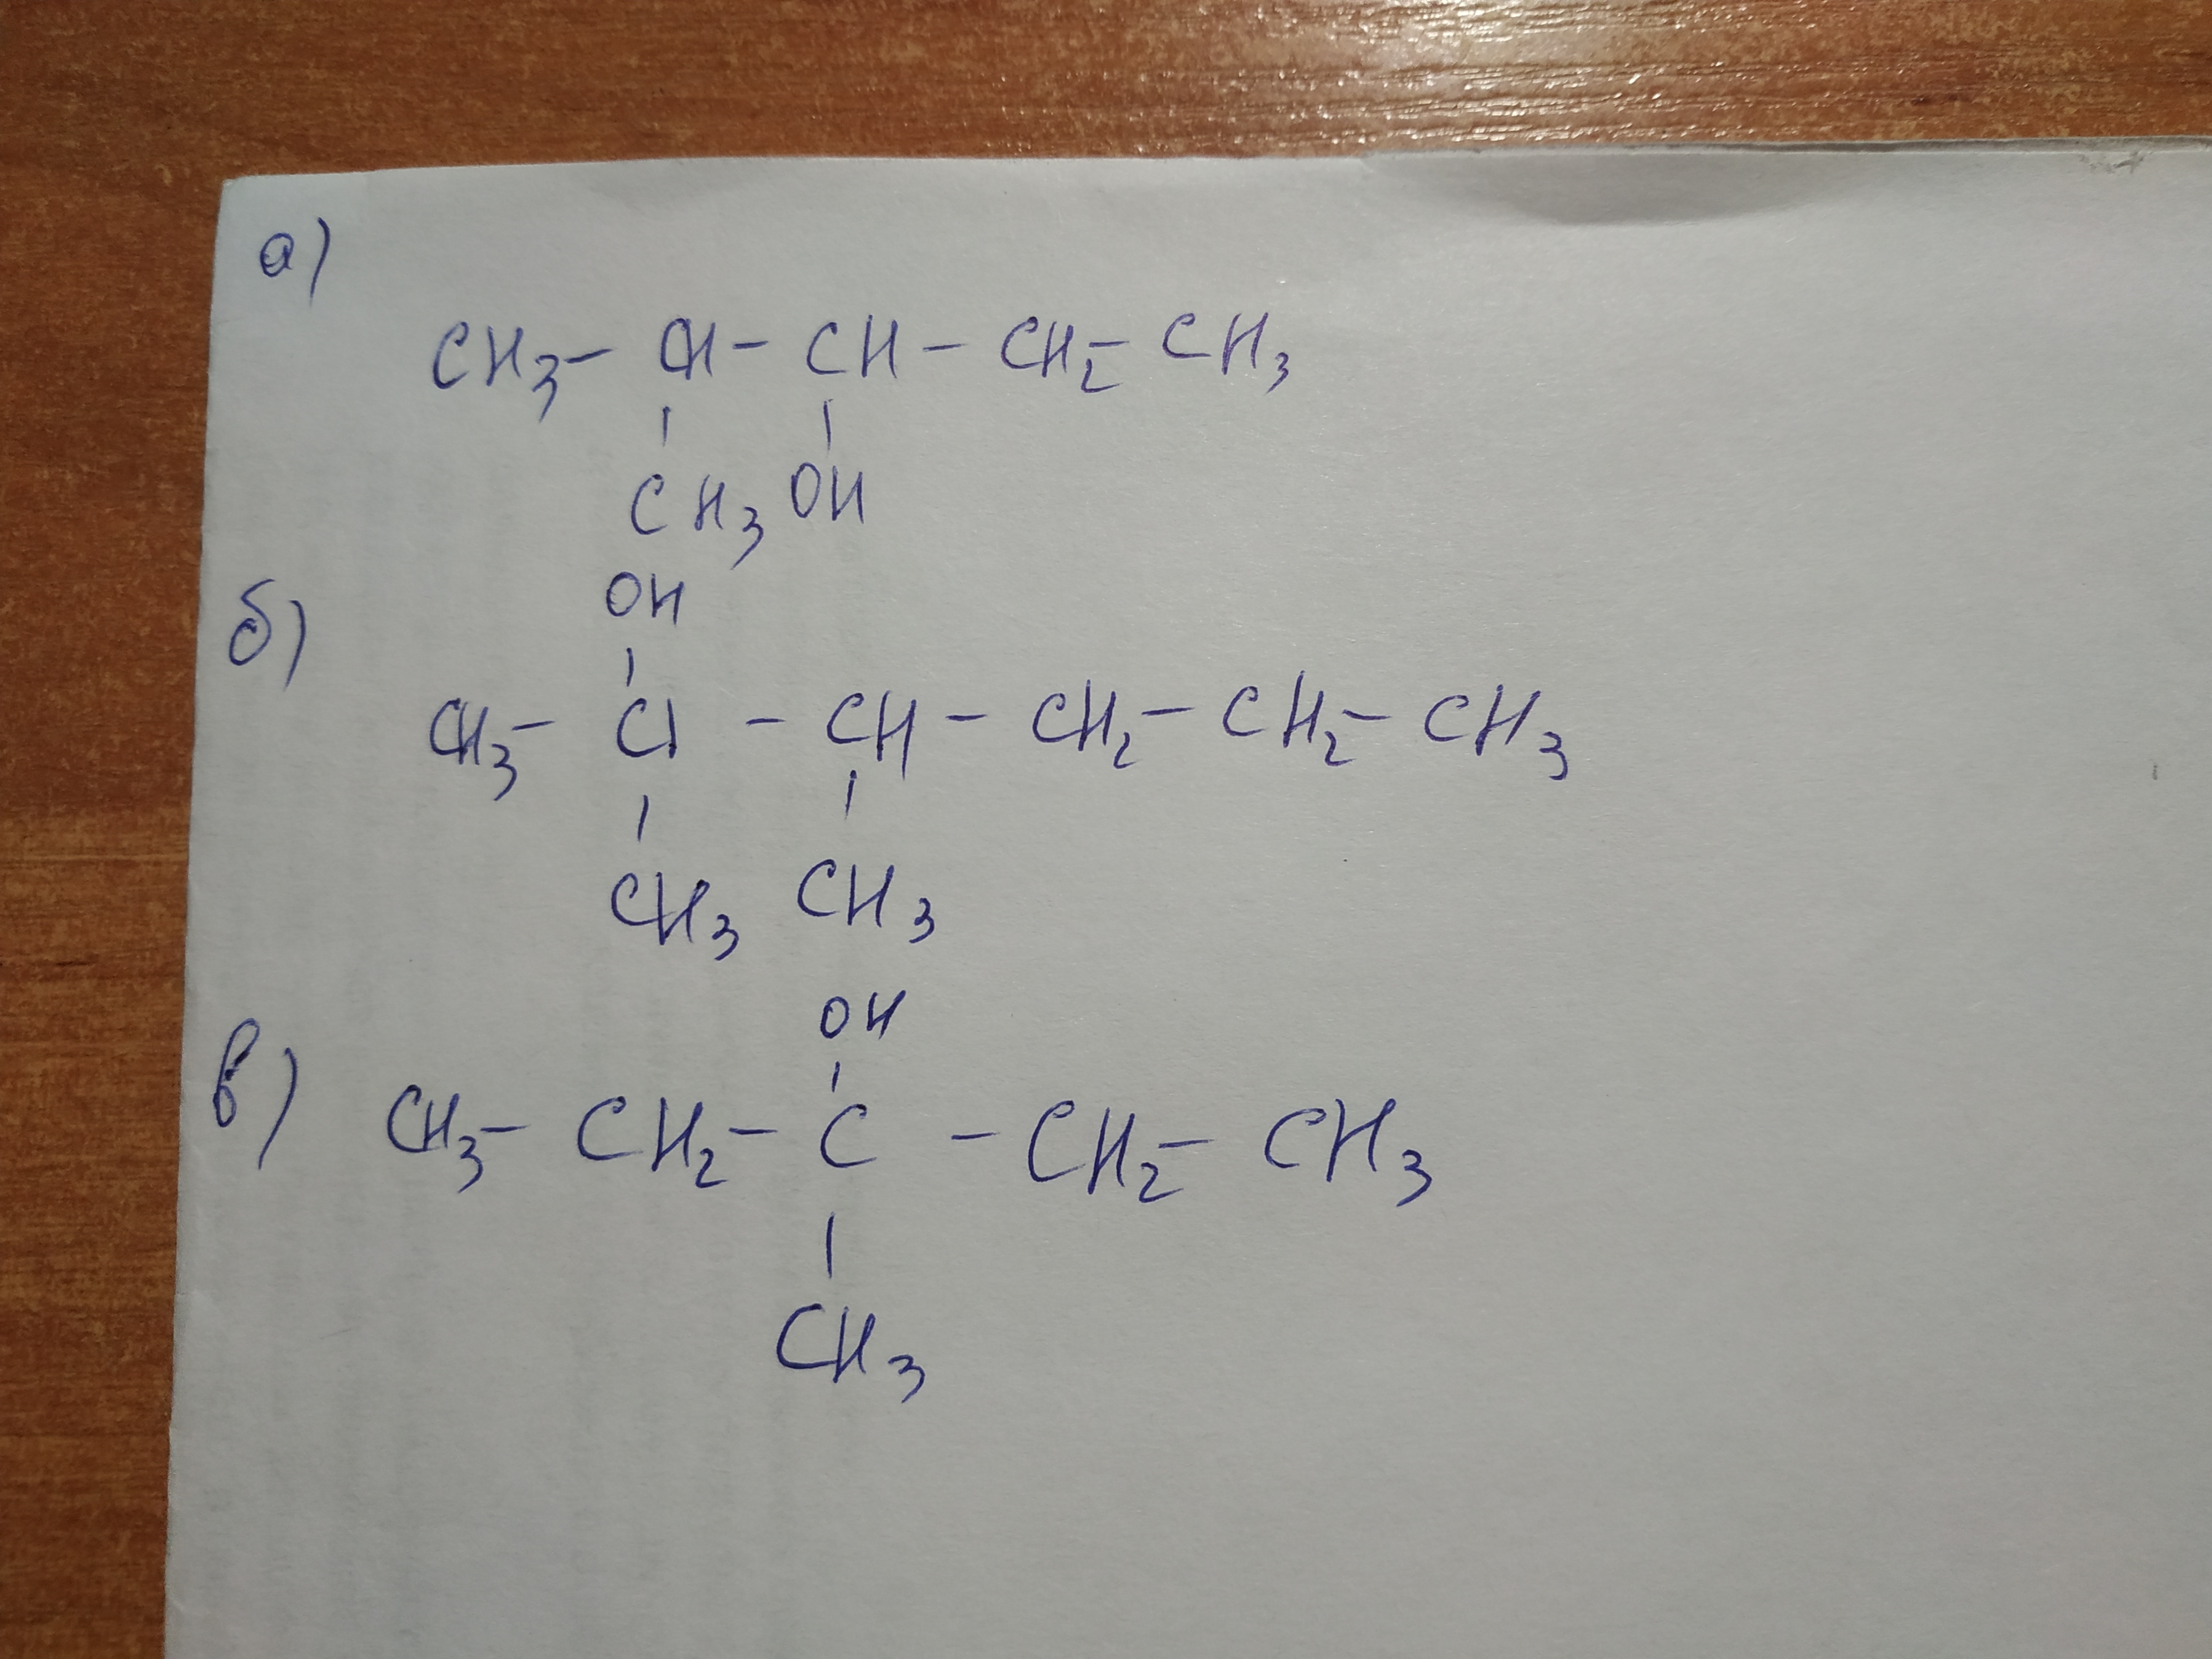 а)
CH3- CH - CH - CH2- CH3
CH3 OH
б)
OH
CH3- Cl - CH - CH2- CH2- CH3
CH3 CH3
в)
OH
CH3- CH2- C - CH2- CH3
CH3